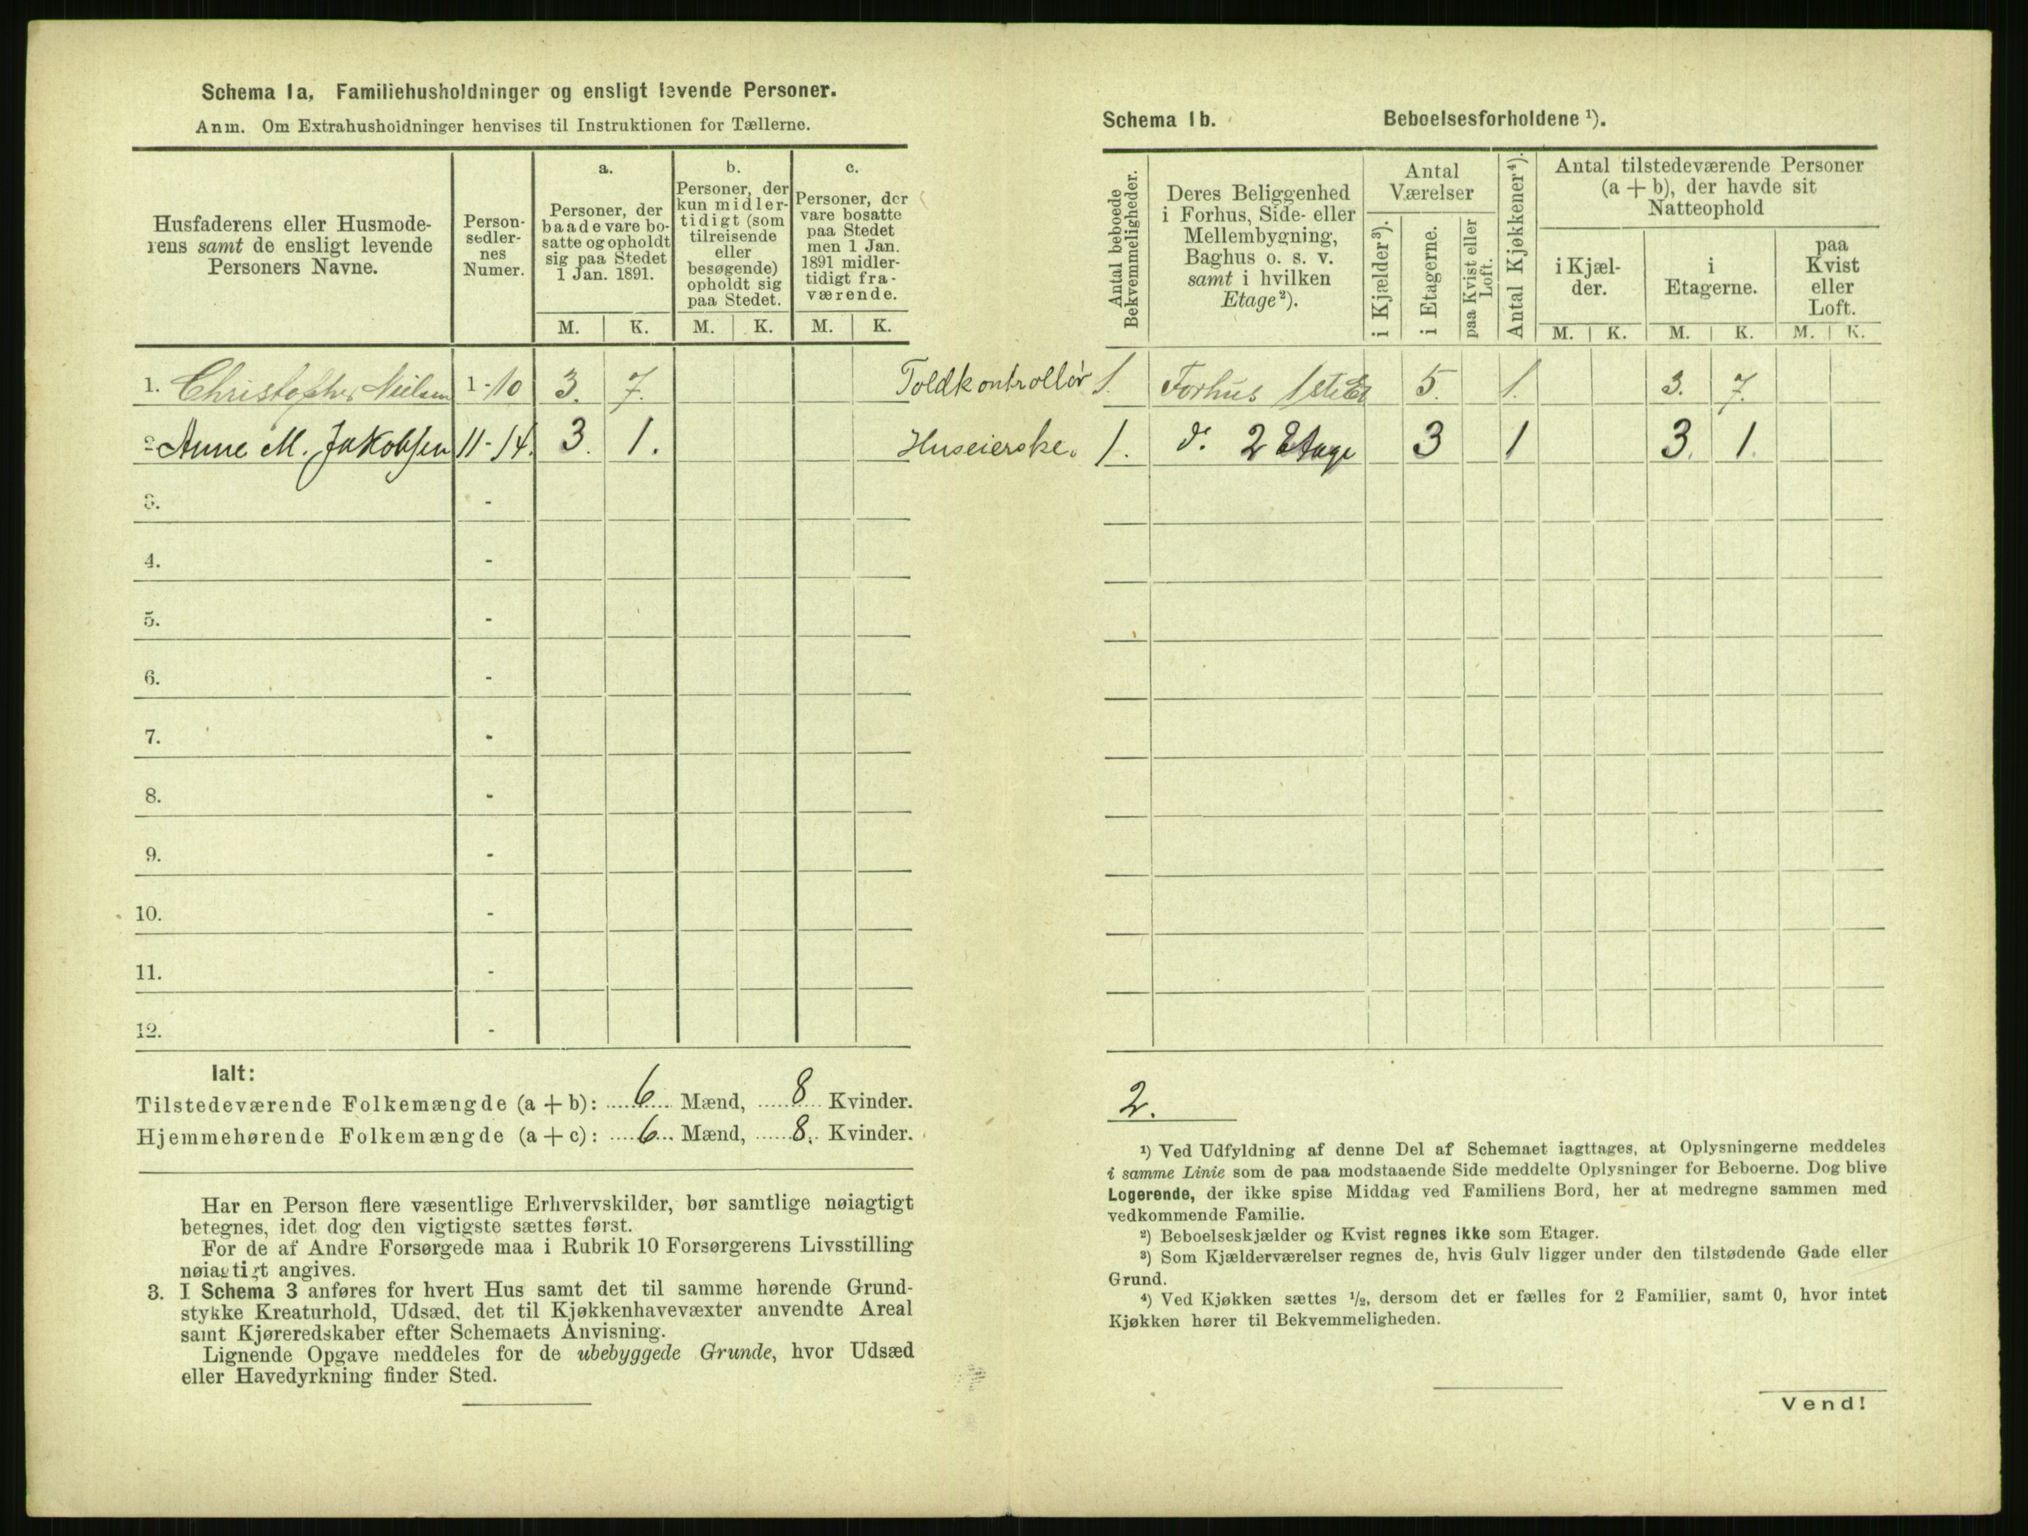 Schema 1a, Familiehusholdninger og ensligt levende Personer.
Anm. Om Extrahusholdninger henvises til Instruktionen for Tællerne.
Husfaderens eller Husmode-
rens samt de ensligt levende
Personers Navne.
Person-
sedler-
nes
Numer.
a.
Personer, der
baade vare bo-
satte og opholdt
sig paa Stedet
1 Jan. 1891.
b.
Personer, der
kun midler-
tidigt (som
tilreisende
eller
besøgende)
opholdt sig
paa Stedet.
c.
Personer, der
vare bosatte
paa Stedet
men 1 Jan.
1891 midler-
tidigt fra-
værende.
M. K. M. K. M. K.
1. Christopher Nielsen 1-10 3. 7. Toldkontrollør
2 Anne M. Jakobsen 11-14. 3. 1. Huseierske.
3. -
4. -
5. -
6. -
7. -
8. -
9. -
10. -
11. -
12. -
Ialt:
Tilstedeværende Folkemængde (a + b): 6 Mænd, 8 Kvinder.
Hjemmehørende Folkemængde (a + c): 6 Mænd, 8. Kvinder.
Har en Person flere væsentlige Erhvervskilder, bør samtlige nøiagtigt
betegnes, idet dog den vigtigste sættes først.
For de af Andre Forsørgede maa i Rubrik 10 Forsørgerens Livsstilling
nøiagtigt angives.
3. I Schema 3 anføres for hvert Hus samt det til samme hørende Grund-
stykke Kreaturhold, Udsæd, det til Kjøkkenhavevæxter anvendte Areal
samt Kjøreredskaber efter Schemaets Anvisning.
Lignende Opgave meddeles for de ubebyggede Grunde, hvor Udsæd
eller Havedyrkning finder Sted.
Schema 1b. Beboelsesforholdene ¹).
Antal beboede
Bekvemmeligheder.
Deres Beliggenhed
i Forhus, Side- eller
Mellembygning,
Baghus o. s. v.
samt i hvilken
Etage²).
Antal
Værelser
i Kjælder³).
i Etagerne.
paa Kvist eller
Loft.
Antal Kjøkkener⁴).
Antal tilstedeværende Personer
(a + b), der havde sit
Natteophold
i Kjæl-
der.
i
Etagerne.
paa
Kvist
eller
Loft.
M. K. M. K. M. K.
1. Forhus 1ste Et 5. 1. 3. 7.
1. d. 2 Etage 3 1 3. 1.
2.
¹) Ved Udfyldning af denne Del af Schemaet iagttages, at Oplysningerne meddeles
i samme Linie som de paa modstaaende Side meddelte Oplysninger for Beboerne. Dog blive
Logerende, der ikke spise Middag ved Familiens Bord, her at medregne sammen med
vedkommende Familie.
²) Beboelseskjælder og Kvist regnes ikke som Etager.
³) Som Kjælderværelser regnes de, hvis Gulv ligger under den tilstødende Gade eller
Grund.
⁴) Ved Kjøkken sættes ½, dersom det er fælles for 2 Familier, samt 0, hvor intet
Kjøkken hører til Bekvemmeligheden.
Vend!